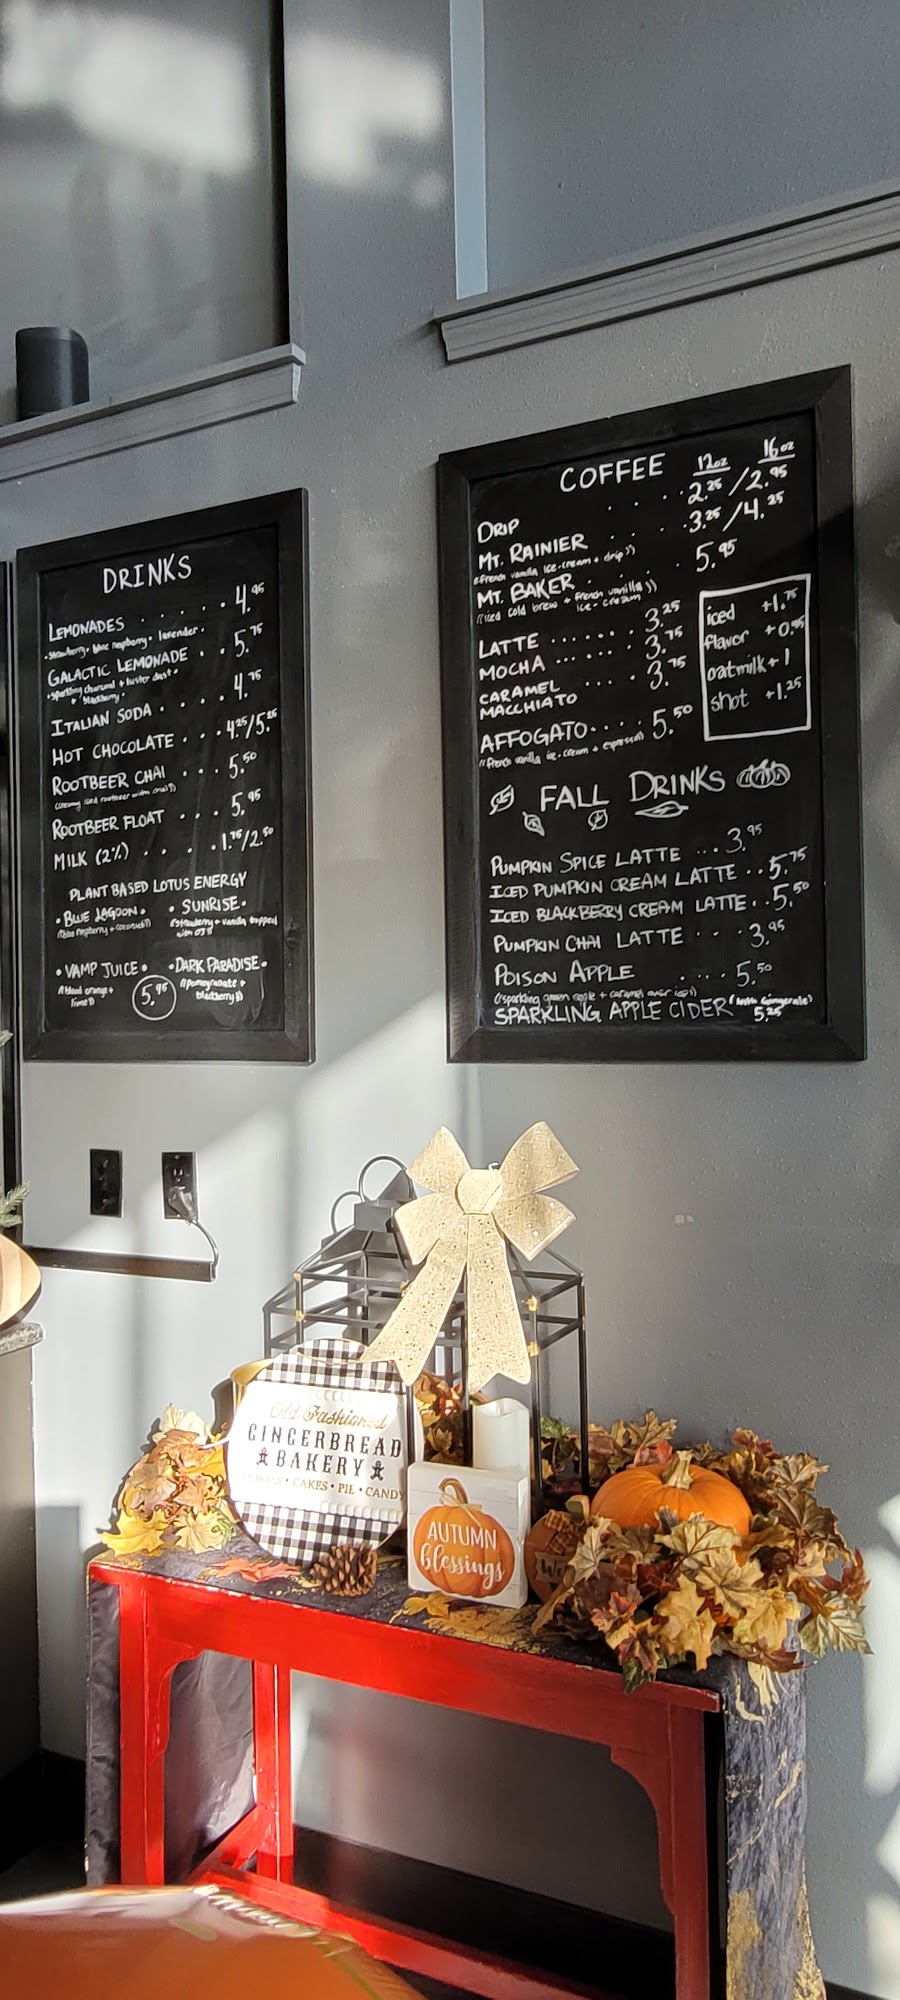 DRINKS
LEMONADES . . . . . . 4.95
• strawberry • blue raspberry • lavender •
GALACTIC LEMONADE . . 5.75
• sparkling charcoal + luster dust •
+ blackberry •
ITALIAN SODA . . . . 4.75
HOT CHOCOLATE . . . 4.25/5.25
ROOTBEER CHAI . . . 5.50
(creamy iced rootbeer with chai)
ROOTBEER FLOAT . . . 5.95
MILK (2%) . . . . 1.75/2.50
PLANT BASED LOTUS ENERGY
• BLUE LAGOON •
((blue raspberry + coconut))
• SUNRISE •
((strawberry + vanilla topped
with OJ))
• VAMP JUICE •
((blood orange +
lime))
• DARK PARADISE •
((pomegranate +
blackberry))
5.95
COFFEE 12oz 16oz
DRIP . . . 2.25 / 2.95
MT. RAINIER . . . 3.25 / 4.25
((french vanilla ice-cream + drip))
MT. BAKER . . . . 5.95
((iced cold brew + french vanilla
ice-cream))
LATTE . . . . . . 3.25
MOCHA . . . . . . 3.75
CARAMEL
MACCHIATO . . . . 3.75
AFFOGATO . . . . 5.50
((french vanilla ice-cream + espresso))
iced +1.75
flavor + 0.95
oatmilk + 1
shot +1.25
FALL DRINKS
PUMPKIN SPICE LATTE . . . 3.95
ICED PUMPKIN CREAM LATTE . . 5.75
ICED BLACKBERRY CREAM LATTE . . 5.50
PUMPKIN CHAI LATTE . . . 3.95
POISON APPLE . . . . 5.50
((sparkling green apple + caramel over ice))
SPARKLING APPLE CIDER (with Gingerale)
5.25
Old Fashioned
GINGERBREAD
BAKERY
CAKES • PIE • CANDY
AUTUMN
blessings